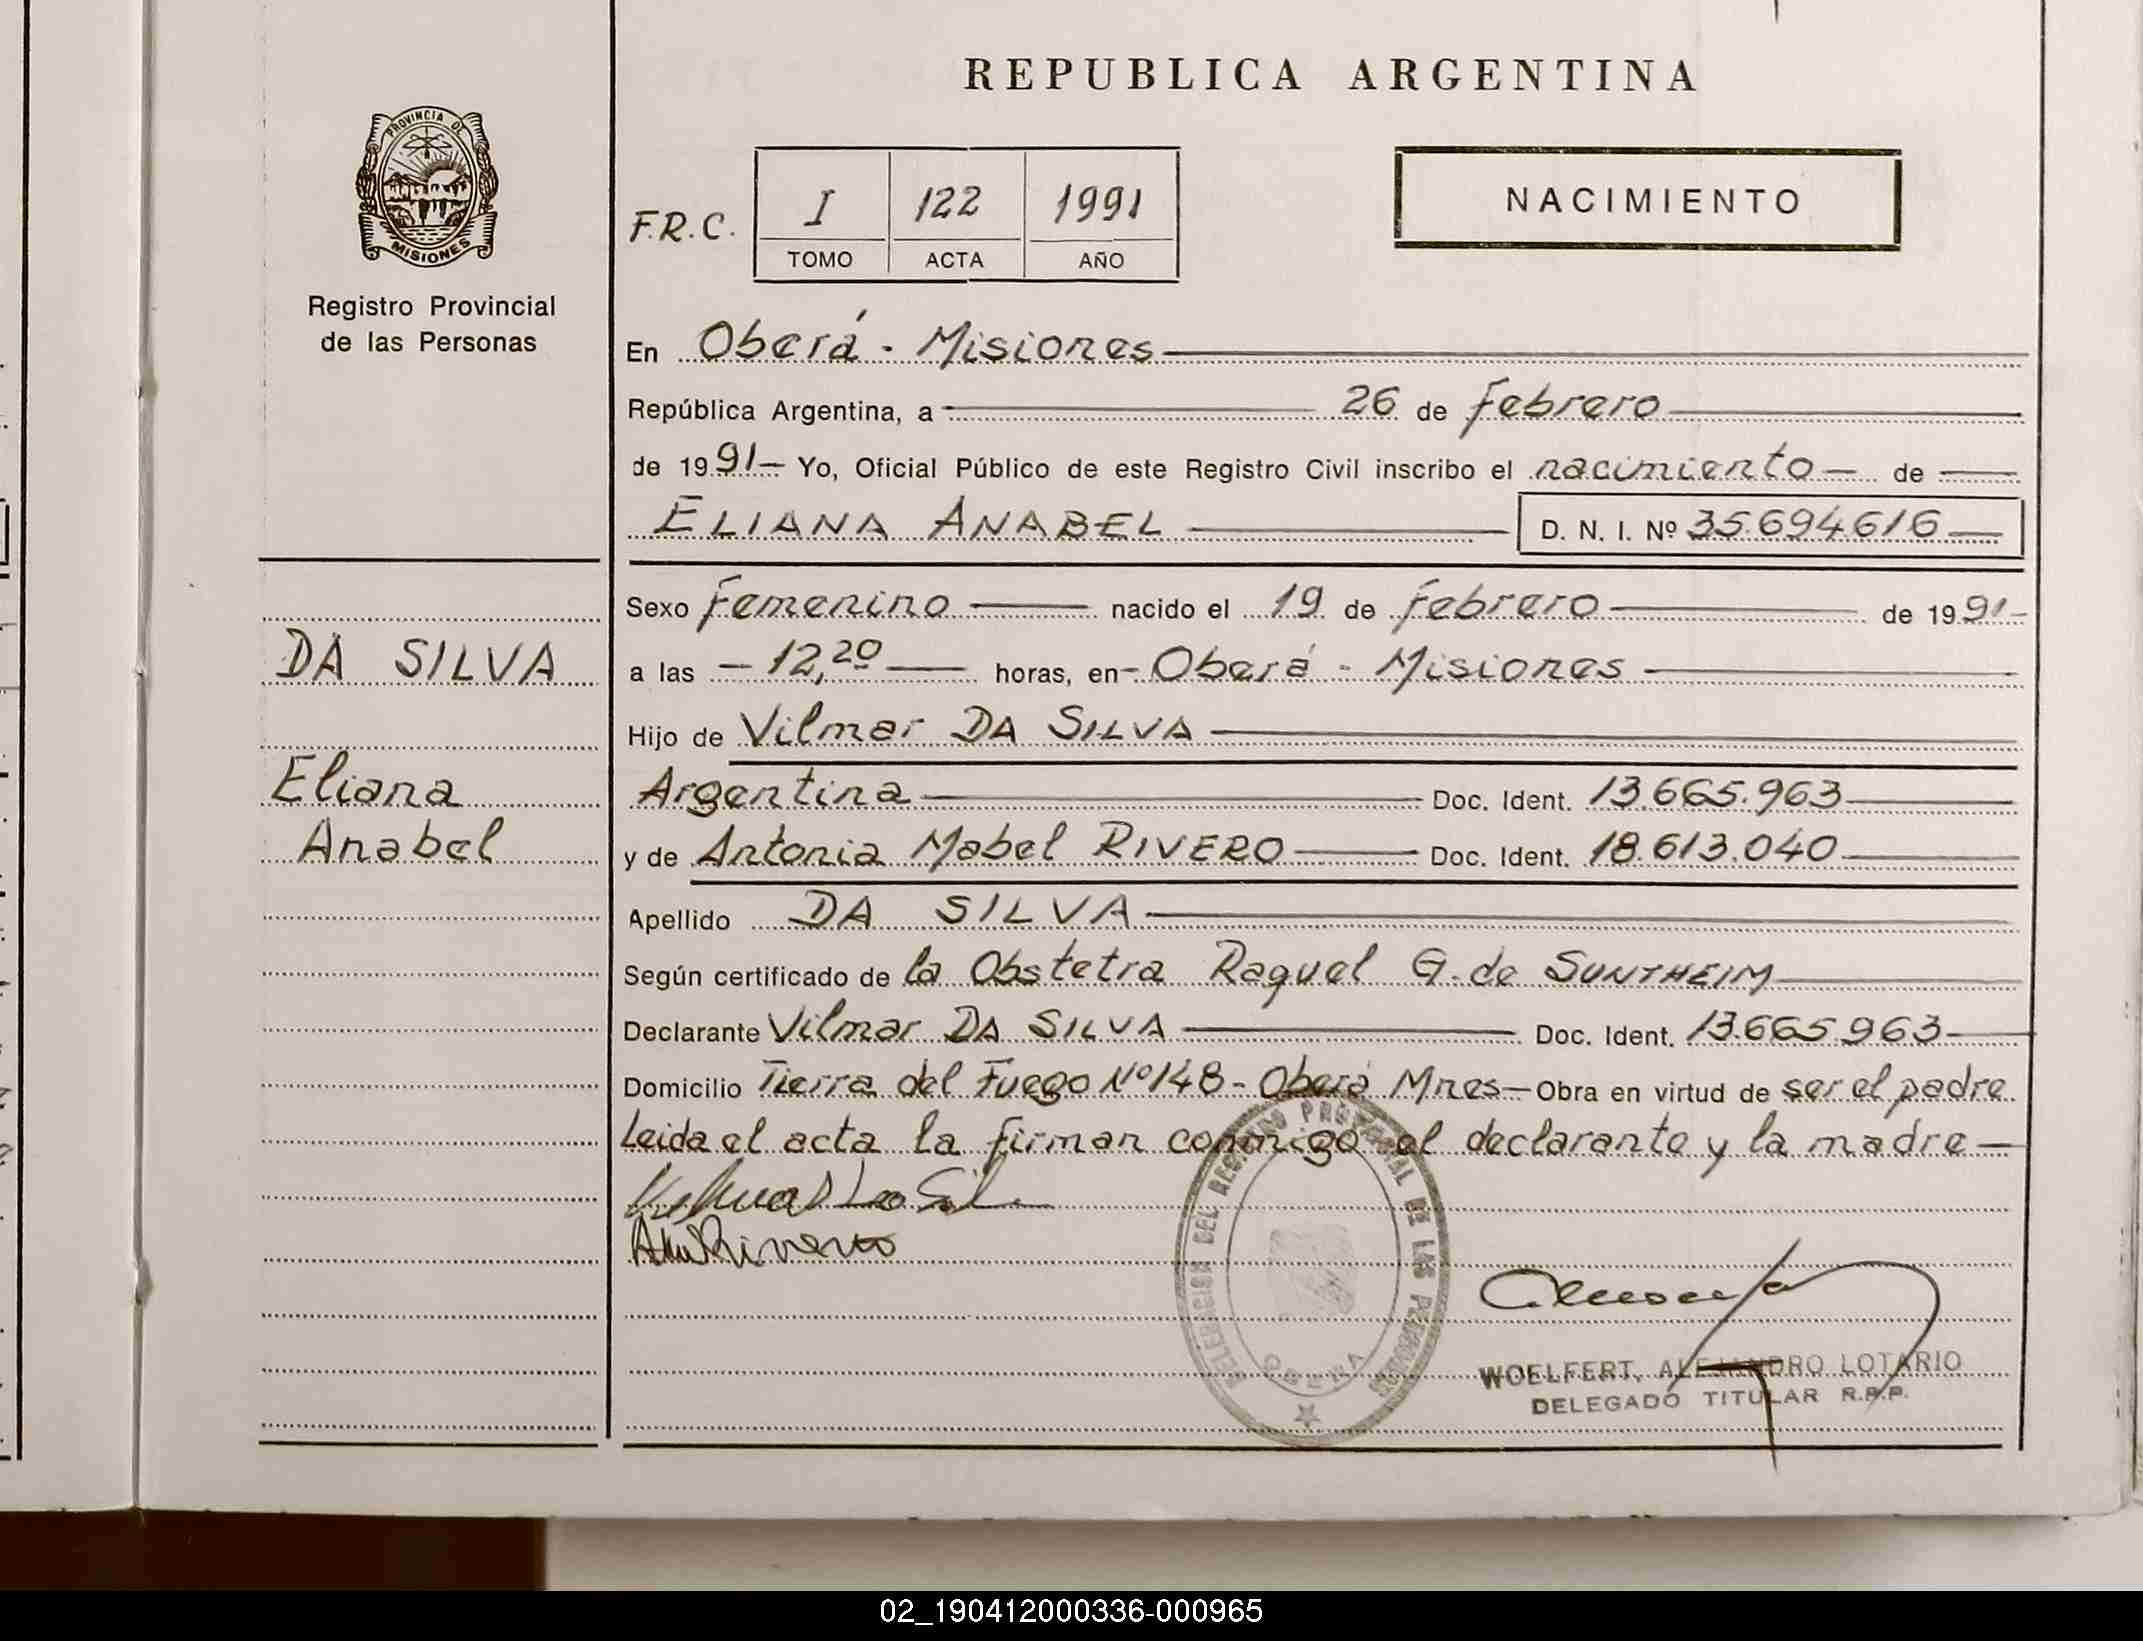 REPUBLICA ARGENTINA
PROVINCIA DE
MISIONES
Registro Provincial
de las Personas
F.R.C.
I 122 1991
TOMO ACTA AÑO
NACIMIENTO
En Oberá - Misiones
República Argentina, a 26 de Febrero
de 1991 - Yo, Oficial Público de este Registro Civil inscribo el nacimiento - de
ELIANA ANABEL D. N. I. Nº 35.694.616
DA SILVA
Eliana
Anabel
Sexo Femenino nacido el 19 de Febrero de 1991-
a las - 12,20 horas, en - Oberá - Misiones
Hijo de Vilmar DA SILVA
Argentina Doc. Ident. 13.665.963
y de Antonia Mabel RIVERO Doc. Ident. 18.613.040
Apellido DA SILVA
Según certificado de la Obstetra Raquel G. de SUNTHEIM
Declarante Vilmar DA SILVA Doc. Ident. 13.665.963
Domicilio Tierra del Fuego Nº 148 - Oberá Mnes - Obra en virtud de ser el padre
Leida el acta la firman conmigo el declarante y la madre -
DELEGACION DEL REGISTRO PROVINCIAL DE LAS PERSONAS
OBERA
WOELFERT, ALEJANDRO LOTARIO
DELEGADO TITULAR R.P.P.
02_190412000336-000965